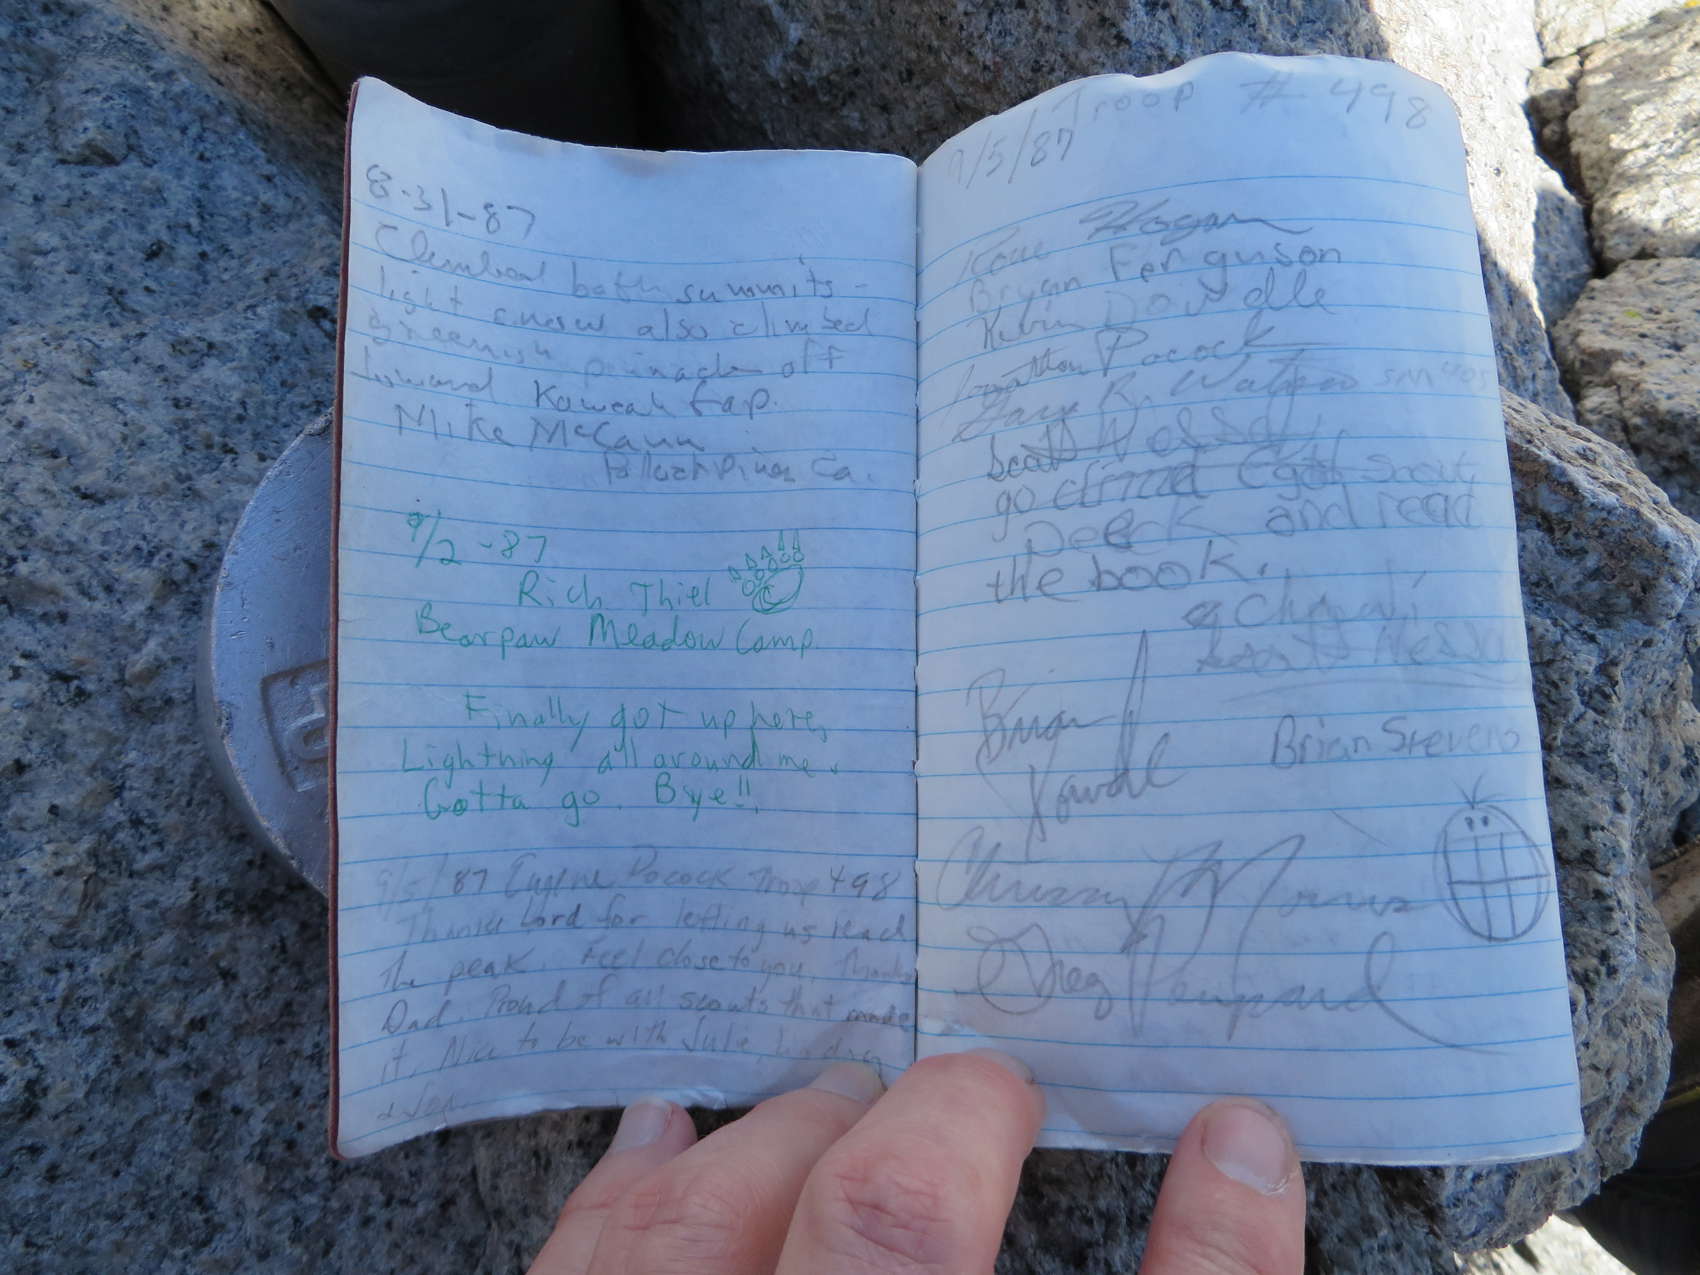 8-31-87
Climbed both summits -
light snow also climbed
greenish pinnacle off
toward Kaweah Gap.
Mike McCann
Pollock Pines Ca.
9/2-87
Rich Thiel
Bearpaw Meadow Camp.
Finally got up here,
Lightning all around me.
Gotta go. Bye!!
9/5/87 Eugene Pocock Troop 498
Thanks Lord for letting us reach
the peak. Feel close to you, Thanks
Dad. Proud of all scouts that made
it. Nice to be with Julie,
Troop # 498
9/5/87
Hogan
Bryan Ferguson
Kevin Dowdle
Jonathan Pocock
Gary R.
Scott
go climb
and read
the book.
Brian
Brian Stevens
Greg